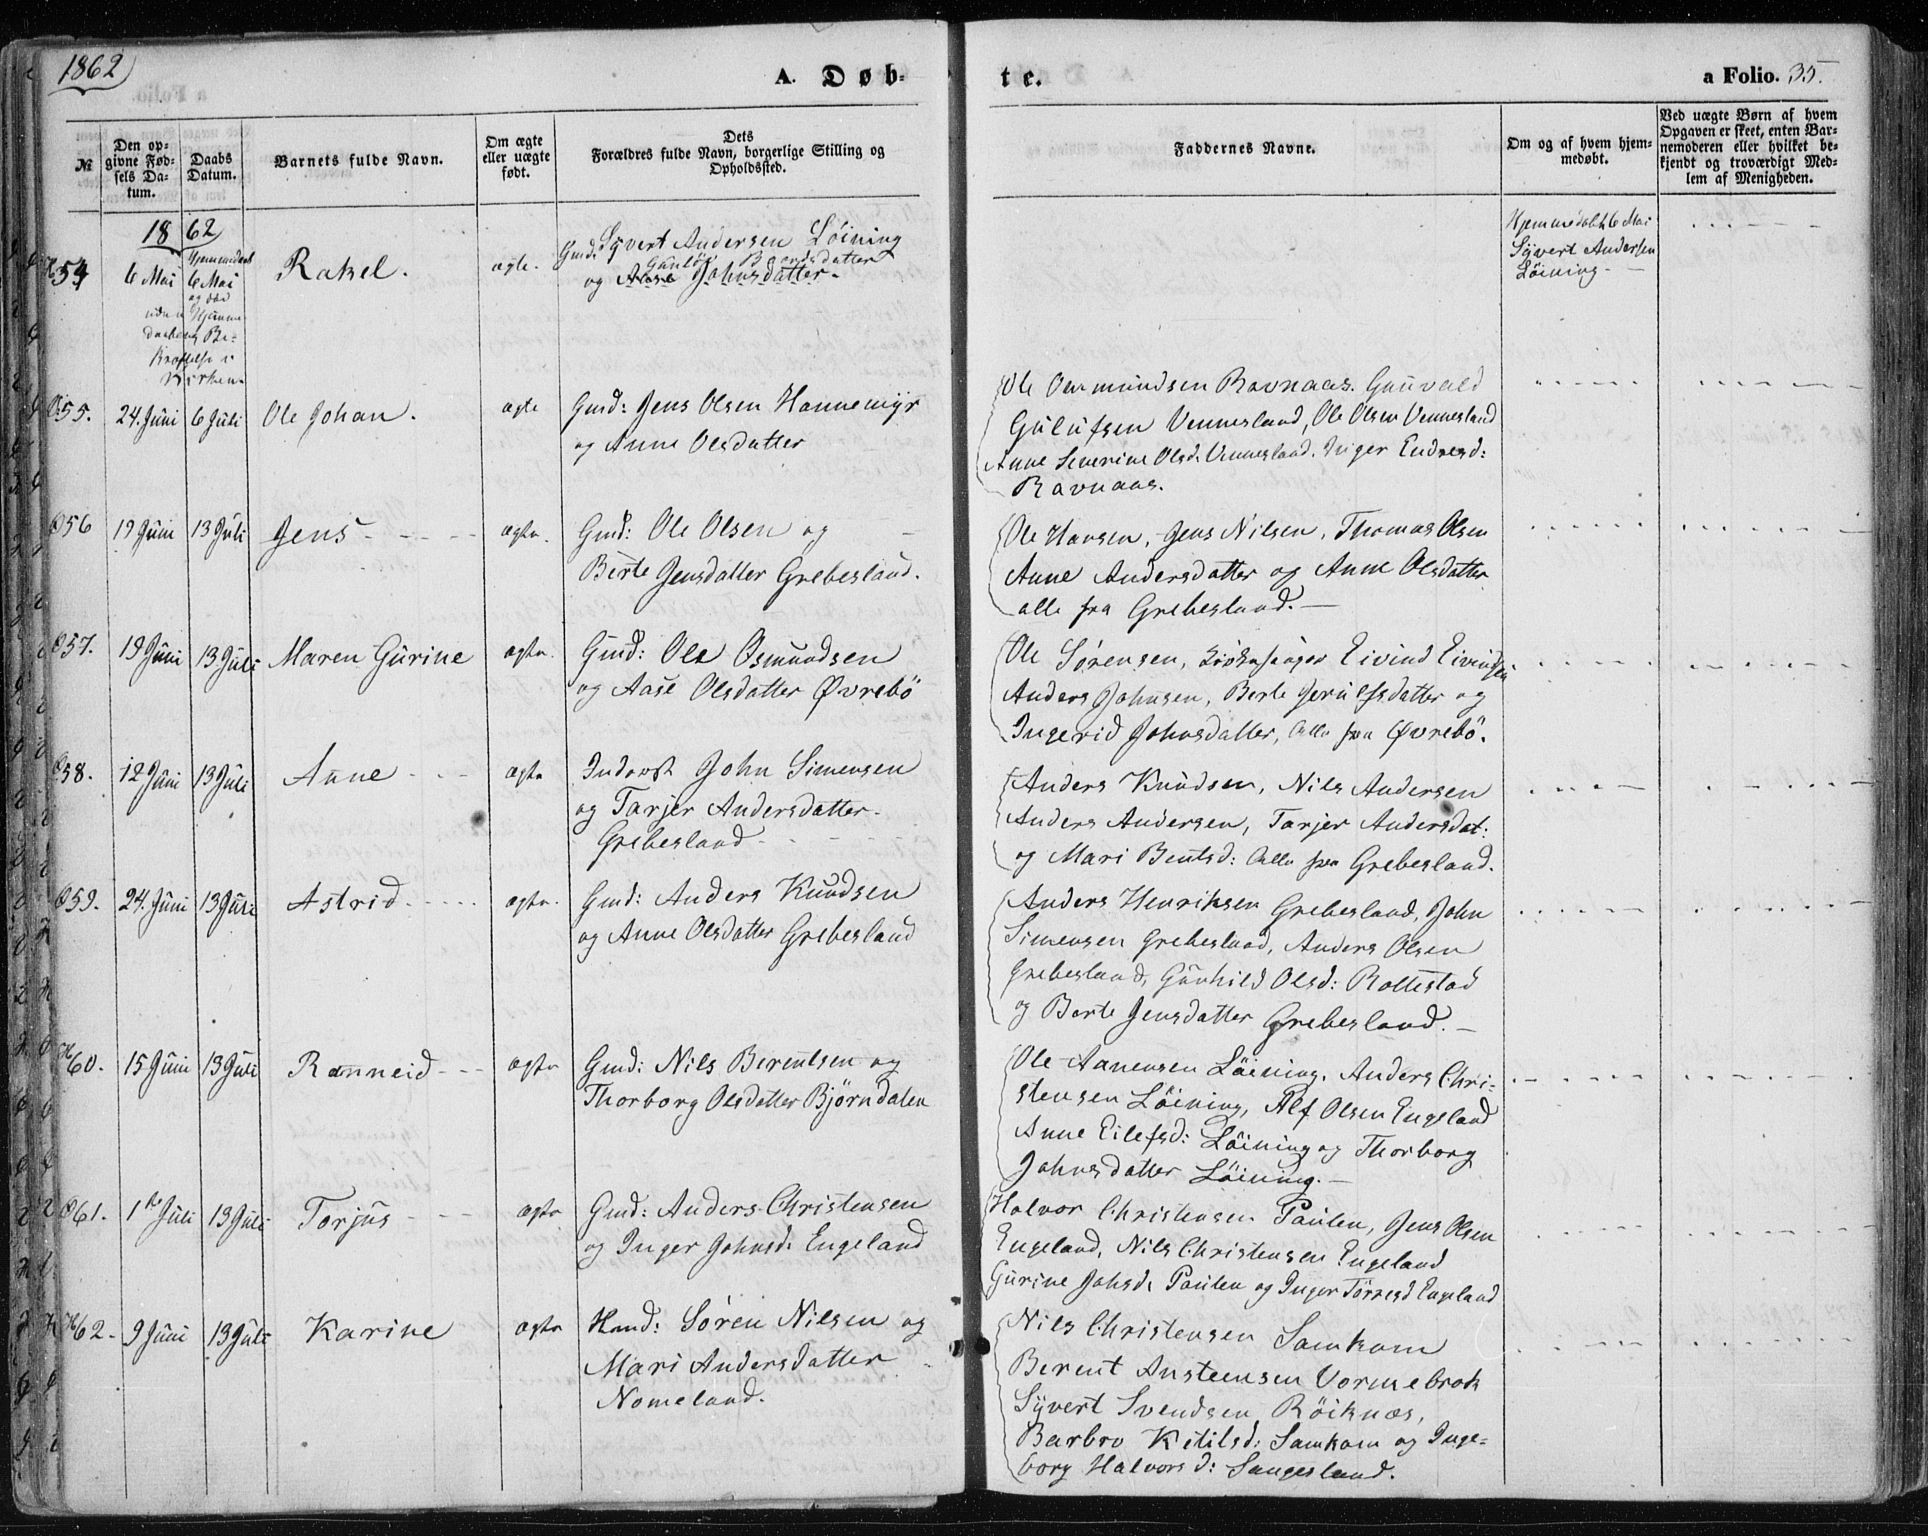 1862
A. Døb-
te.
a Folio. 35.
№
Den op-
givne Fød-
sels Da-
tum.
Daabs
Datum.
Barnets fulde Navn.
Om ægte
eller uægte
født.
Dets
Forældres fulde Navn, borgerlige Stilling og
Opholdssted.
Faddernes Navne.
Om og af hvem hjem-
medøbt.
Ved uægte Børn af hvem
Opgaven er skeet, enten Bar-
nemoderen eller hvilket be-
kjendt og troværdigt Med-
lem af Menigheden.
1862
54 6 Mai Hjemmedøbt 6 Mai Rakel. ægte. Gmd: Syvert Andersen Löining
og Aase Johnsdatter.
Hjemmedøbt 6 Mai
Syvert Andersen
Löining
55. 24. Juni 6 Juli Ole Johan. ægte Gmd: Jens Olsen Hannemyr
og Anne Olsdatter
Ole Osmundsen Ravnaas. Gunvald
Gulufsen Vennesland, Ole Olsen Vennesland
Anne Severine Olsd. Vennesland. Inger Endresd:
Ravnaas.
56 19 Juni 13 Juli Jens ægte. Gmd: Ole Olsen og
Berte Jensdatter Grebesland.
Ole Hansen, Jens Nilsen, Thomas Olsen
Anne Andersdatter og Anne Olsdatter
alle fra Grebesland.
57. 19 Juni 13 Juli Maren Gurine ægte. Gmd: Ole Osmundsen
og Aase Olsdatter Øvrebö
Ole Sørensen, Kirkesanger Eivind Eivindsen
Anders Johnsen, Berte Jerulfsdatter og
Ingerid Johnsdatter, Alle fra Øvrebö.
58. 12 Juni 13 Juli Anne ægte Inderst John Simensen
og Tarjer Andersdatter
Grebesland
Anders Knudsen, Nils Andersen
Anders Andersen, Tarjer Andersdat:
og Mari Bentsd: Alle fra Grebesland.
59. 24. Juni 13 Juli Astrid ægte. Gmd: Anders Knudsen
og Anne Olsdatter Grebesland
Anders Henriksen Grebesland, John
Simensen Grebesland, Anders Olsen
Grebesland, Gunhild Olsd: Rollestad
og Berte Jensdatter Grebesland.
60. 15 Juni 13 Juli Ranneid ægte Gmd: Nils Berentsen og
Thorborg Olsdatter Björndalen
Ole Aanensen Löining, Anders Chri-
stensen Löining, Alf Olsen Engeland
Anne Eilefsd: Löining og Thorborg
Johnsdatter Löining.
61. 1ste Juli 13 Juli Torjus ægte Gmd: Anders Christensen
og Inger Johnsd. Engeland
Halvor Christensen Paulen, Jens Olsen
Engeland, Nils Christensen Engeland
Gurine Johsd. Paulen og Inger Törresd Engeland
62. 9 Juni 13 Juli Karine ægte Hmd: Søren Nilsen og
Mari Andersdatter
Nomeland.
Nils Christensen Samkom
Berent Ansteensen Vormebrok
Syvert Svendsen Röiknæs,
Barbro Ketilsd: Samkom og Inge-
borg Halvorsd: Sangesland.